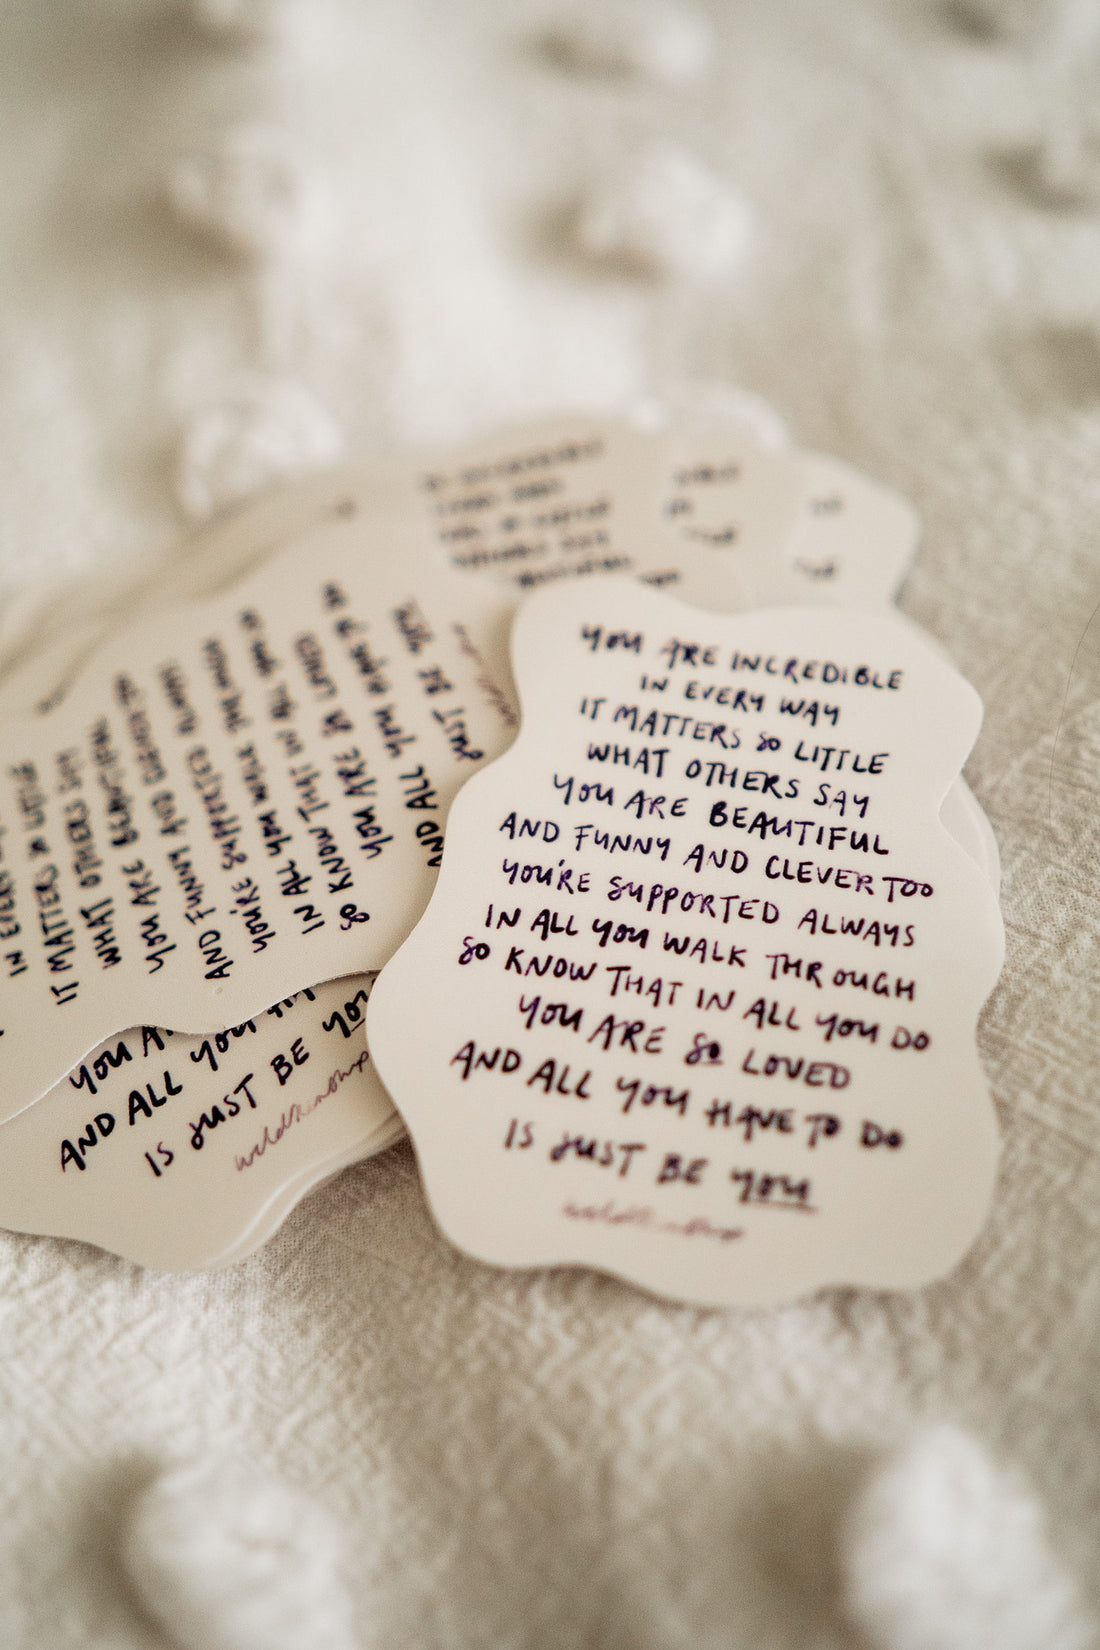 YOU ARE INCREDIBLE
IN EVERY WAY
IT MATTERS SO LITTLE
WHAT OTHERS SAY
YOU ARE BEAUTIFUL
AND FUNNY AND CLEVER TOO
YOU'RE SUPPORTED ALWAYS
IN ALL YOU WALK THROUGH
SO KNOW THAT IN ALL YOU DO
YOU ARE SO LOVED
AND ALL YOU HAVE TO DO
IS JUST BE YOU
IT MATTERS SO LITTLE
WHAT OTHERS SAY
YOU ARE BEAUTIFUL
AND FUNNY AND CLEVER TOO
YOU'RE SUPPORTED ALWAYS
IN ALL YOU WALK THROUGH
SO KNOW THAT IN ALL YOU DO
YOU ARE SO LOVED
AND ALL YOU HAVE TO DO
JUST BE YOU
YOU
AND ALL YOU
IS JUST BE YOU